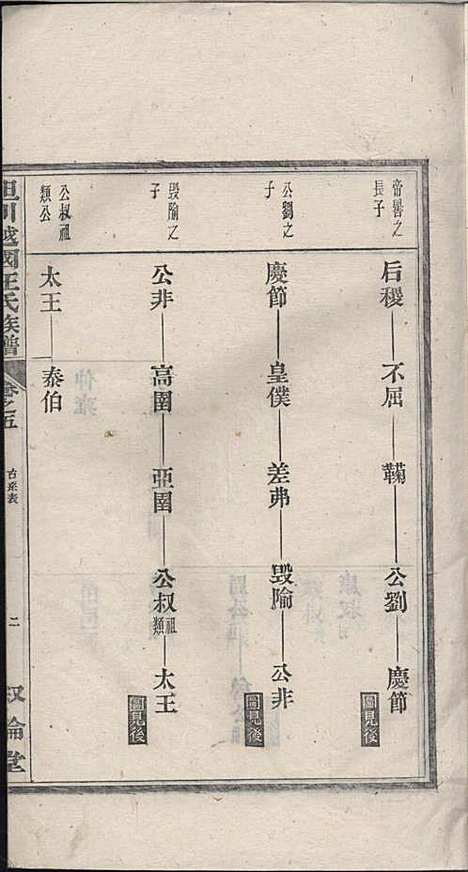 帝嚳之
長子
后稷 不屈 鞠 公劉 慶節
圖見後
公劉之
子
慶節 皇僕 差弗 毀隃 公非
圖見後
毀隃之
子
公非 高圉 亞圉 公叔祖類 太王
圖見後
公叔祖
類公
太王 泰伯
越國汪氏族譜 卷之五 古系表 二 叙倫堂